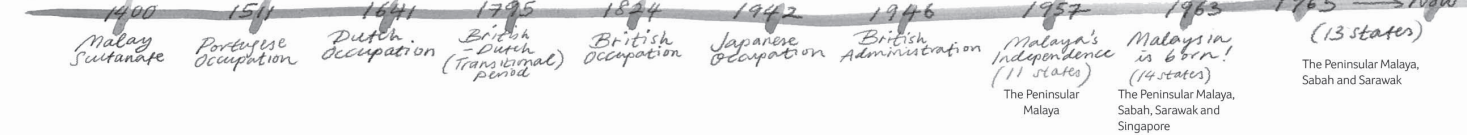 1400
Malay
Sultanate
1511
Portugese
Occupation
1641
Dutch
Occupation
1795
British
- Dutch
(Transitional)
period
1824
British
Occupation
1942
Japanese
Occupation
1946
British
Administration
1957
Malaya's
Independence
(11 states)
The Peninsular
Malaya
1963
Malaysia
is born!
(14 states)
The Peninsular Malaya,
Sabah, Sarawak and
Singapore
1965 → Now
(13 states)
The Peninsular Malaya,
Sabah and Sarawak